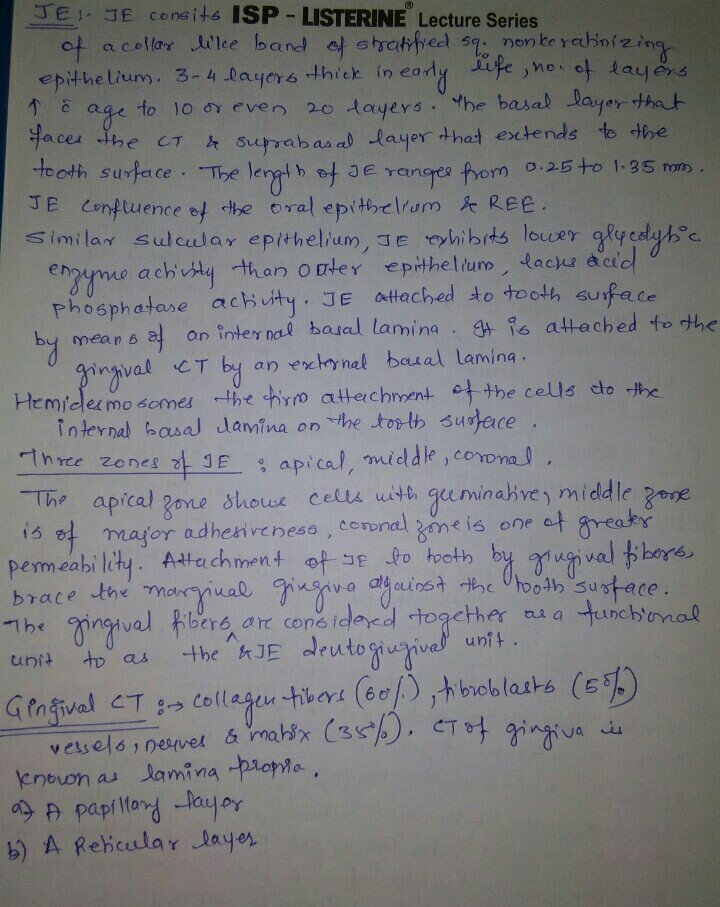 JE :- JE consits ISP - LISTERINE® Lecture Series
of a collar like band of stratified sq. nonkeratinizing
epithelium. 3-4 layers thick in early life, no. of layers
↑ c̄ age to 10 or even 20 layers. The basal layer that
faces the CT & suprabasal layer that extends to the
tooth surface. The length of JE ranges from 0.25 to 1.35 mm.
JE confluence of the oral epithelium & REE.
Similar sulcular epithelium, JE exhibits lower glycolytic
enzyme activity than outer epithelium, lacks acid
phosphatase activity. JE attached to tooth surface
by means of an internal basal lamina. It is attached to the
gingival CT by an external basal lamina.
Hemidesmosomes the firm attachment of the cells to the
internal basal lamina on the tooth surface.
Three zones of JE : apical, middle, coronal.
The apical zone shows cells with geeminative, middle zone
is of major adhesiveness, coronal zone is one of greater
permeability. Attachment of JE to tooth by gingival fibers,
brace the marginal gingiva against the tooth surface.
The gingival fibers are considered together as a functional
unit to as the ^ & JE dentogingival unit.
Gingival CT :→ collagen fibers (60%), fibroblasts (5%)
vessels, nerves & matrix (35%). CT of gingiva is
known as lamina propria.
a) A papillary layer
b) A Reticular layer